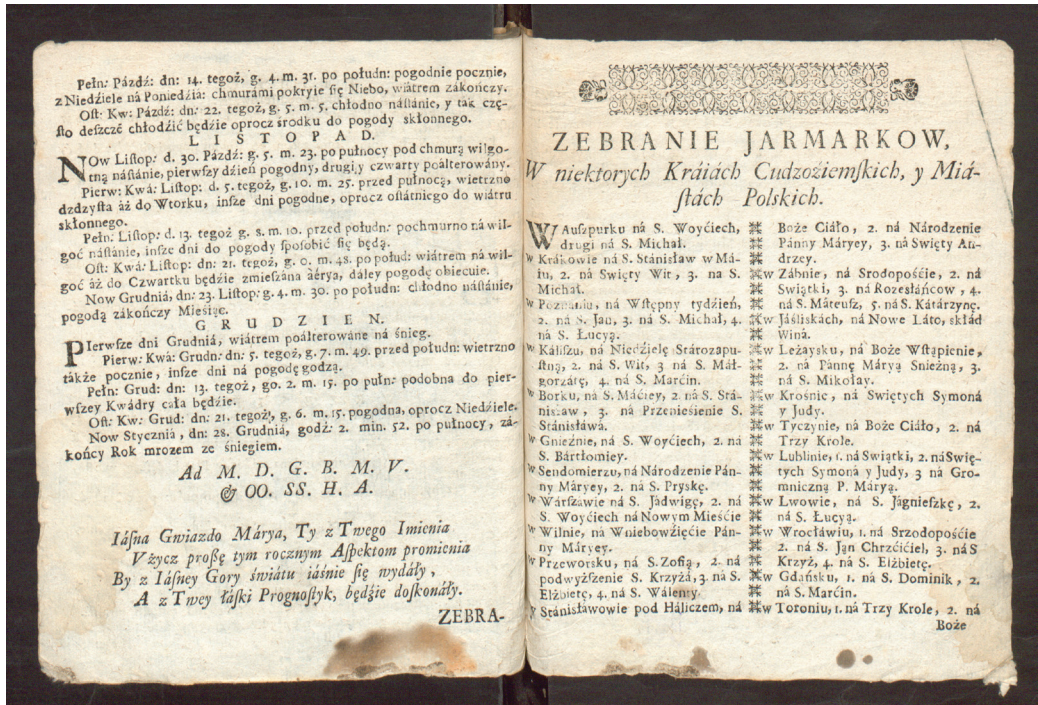 Pełn: Páźdź: dn: 14. tegoż, g. 4. m. 31. po południ: pogodnie pocznie,
z Niedźiele ná Poniedźia: chmurámi pokryie ſię Niebo, wiátrem zákończy.
Oſt: Kw: Páźdź: dn: 22. tegoż, g. 5. m. 5. chłodno náſtánie, y ták czę-
ſto deſzczé chłodźić będźie oprocz środku do pogody skłonnego.
LISTOPAD.
NOw Liſtop: d. 30. Páźdź: g. 5. m. 23. po pułnocy pod chmurą wilgo-
tną náſtánie, pierwſzy dźień pogodny, drugi, y czwarty poálterowány.
Pierw: Kwá: Liſtop: d. 5. tegoż, g. 10. m. 25. przed pułnocą, wietrzno
dzdzyſta áż do Wtorku, inſze dni pogodne, oprocz oſtátniego do wiátru
skłonnego.
Pełn: Liſtop: d. 13. tegoż g. 8. m. 10. przed połudn: pochmurno ná wil-
goć náſtánie, inſze dni do pogody ſpoſobić ſię będą.
Oſt: Kwá: Liſtop: dn: 21. tegoż, g. 0. m. 48. po połud: wiátrem ná wil-
goć áż do Czwartku będźie zmieſzána áérya, dáley pogodę obiecuie.
Now Grudniá, dn: 23. Liſtop: g. 4. m. 30. po połudn: chłodno náſtánie,
pogodą zákończy Mieśiąc.
GRUDZIEN.
PIerwſze dni Grudniá, wiátrem poálterowáne ná śnieg.
Pierw: Kwá: Grudn: dn: 5. tegoż, g. 7. m. 49. przed połudn: wietrzno
tákże pocznie, inſze dni ná pogodę godzą.
Pełn: Grud: dn: 13. tegoż, go. 2. m. 15. po pułn: podobna do pier-
wſzey Kwádry cáła będźie.
Oſt: Kw: Grud: dn: 21. tegoż, g. 6. m. 15. pogodna, oprocz Niedźiele.
Now Styczniá, dn: 28. Grudniá, godź: 2. min. 52. po pułnocy, zá-
kończy Rok mrozem ze śniegiem.
Ad M. D. G. B. M. V.
& OO. SS. H. A.
Iáſna Gwiazdo Márya, Ty z Twego Imienia
Vżycz proſzę tym rocznym Aſpektom promienia
By z Iáſney Gory świátu iáśnie ſię wydáły,
A z Twey łáſki Prognoſtyk, będźie doſkonáły.
ZEBRA-
ZEBRANIE JARMARKOW,
W niektorych Kráiách Cudzoźiemſkich, y Miá-
ſtách Polskich.
W Auſzpurku ná S. Woyćiech,
drugi ná S. Michał.
w Krákowie ná S. Stániſław w Má-
iu, 2. ná Swięty Wit, 3. ná S.
Michał.
w Poznániu, ná Wſtępny tydźień,
2. ná S. Jan, 3. ná S. Michał, 4.
ná S. Łucyą.
w Káliſzu, ná Niedźielę Stározapu-
ſtną, 2. ná S. Wit, 3 ná S. Máł-
gorzátę, 4. ná S. Marćin.
w Borku, ná S. Máćiey, 2. ná S. Stá-
niſław, 3. ná Przenieśienie S.
Stániſłáwá.
w Gnieźnie, ná S. Woyćiech, 2. ná
S. Bártłomiey.
w Sendomierzu, ná Národzenie Pán-
ny Máryey, 2. ná S. Pryskę.
w Wárſzáwie ná S. Jádwigę, 2. ná
S. Woyćiech ná Nowym Mieśćie
w Wilnie, ná Wniebowźięćie Pán-
ny Máryey.
w Przeworsku, ná S. Zofią, 2. ná
podwyżſzenie S. Krzyżá, 3. ná S.
Elżbietę, 4. ná S. Wálenty.
w Stánisłáwowie pod Háliczem, ná
Boże Ciáło, 2. ná Národzenie
Pánny Máryey, 3. ná Swięty An-
drzey.
w Zábnie, ná Srodopośćie, 2. ná
Swiątki, 3. ná Rozeſłáńcow, 4.
ná S. Máteuſz, 5. ná S. Kátárzynę.
w Jáśliskách, ná Nowe Láto, skłád
Winá.
w Leżaysku, ná Boże Wſtąpienie,
2. ná Pánnę Máryą Snieżną, 3.
ná S. Mikołay.
w Krośnie, ná Swiętych Symoná
y Judy.
w Tyczynie, ná Boże Ciáło, 2. ná
Trzy Krole.
w Lublinie, 1. ná Swiątki, 2. ná Swię-
tych Symoná y Judy, 3 ná Gro-
mniczną P. Máryą.
w Lwowie, ná S. Jágnieſzkę, 2.
ná S. Łucyą.
w Wrocłáwiu, 1. ná Srzodopośćie
2. ná S. Jąn Chrzćićiel, 3. ná S
Krzyż, 4. ná S. Elżbietę.
w Gdańsku, 1. ná S. Dominik, 2.
ná S. Marćin.
w Toroniu, 1. ná Trzy Krole, 2. ná
Boże